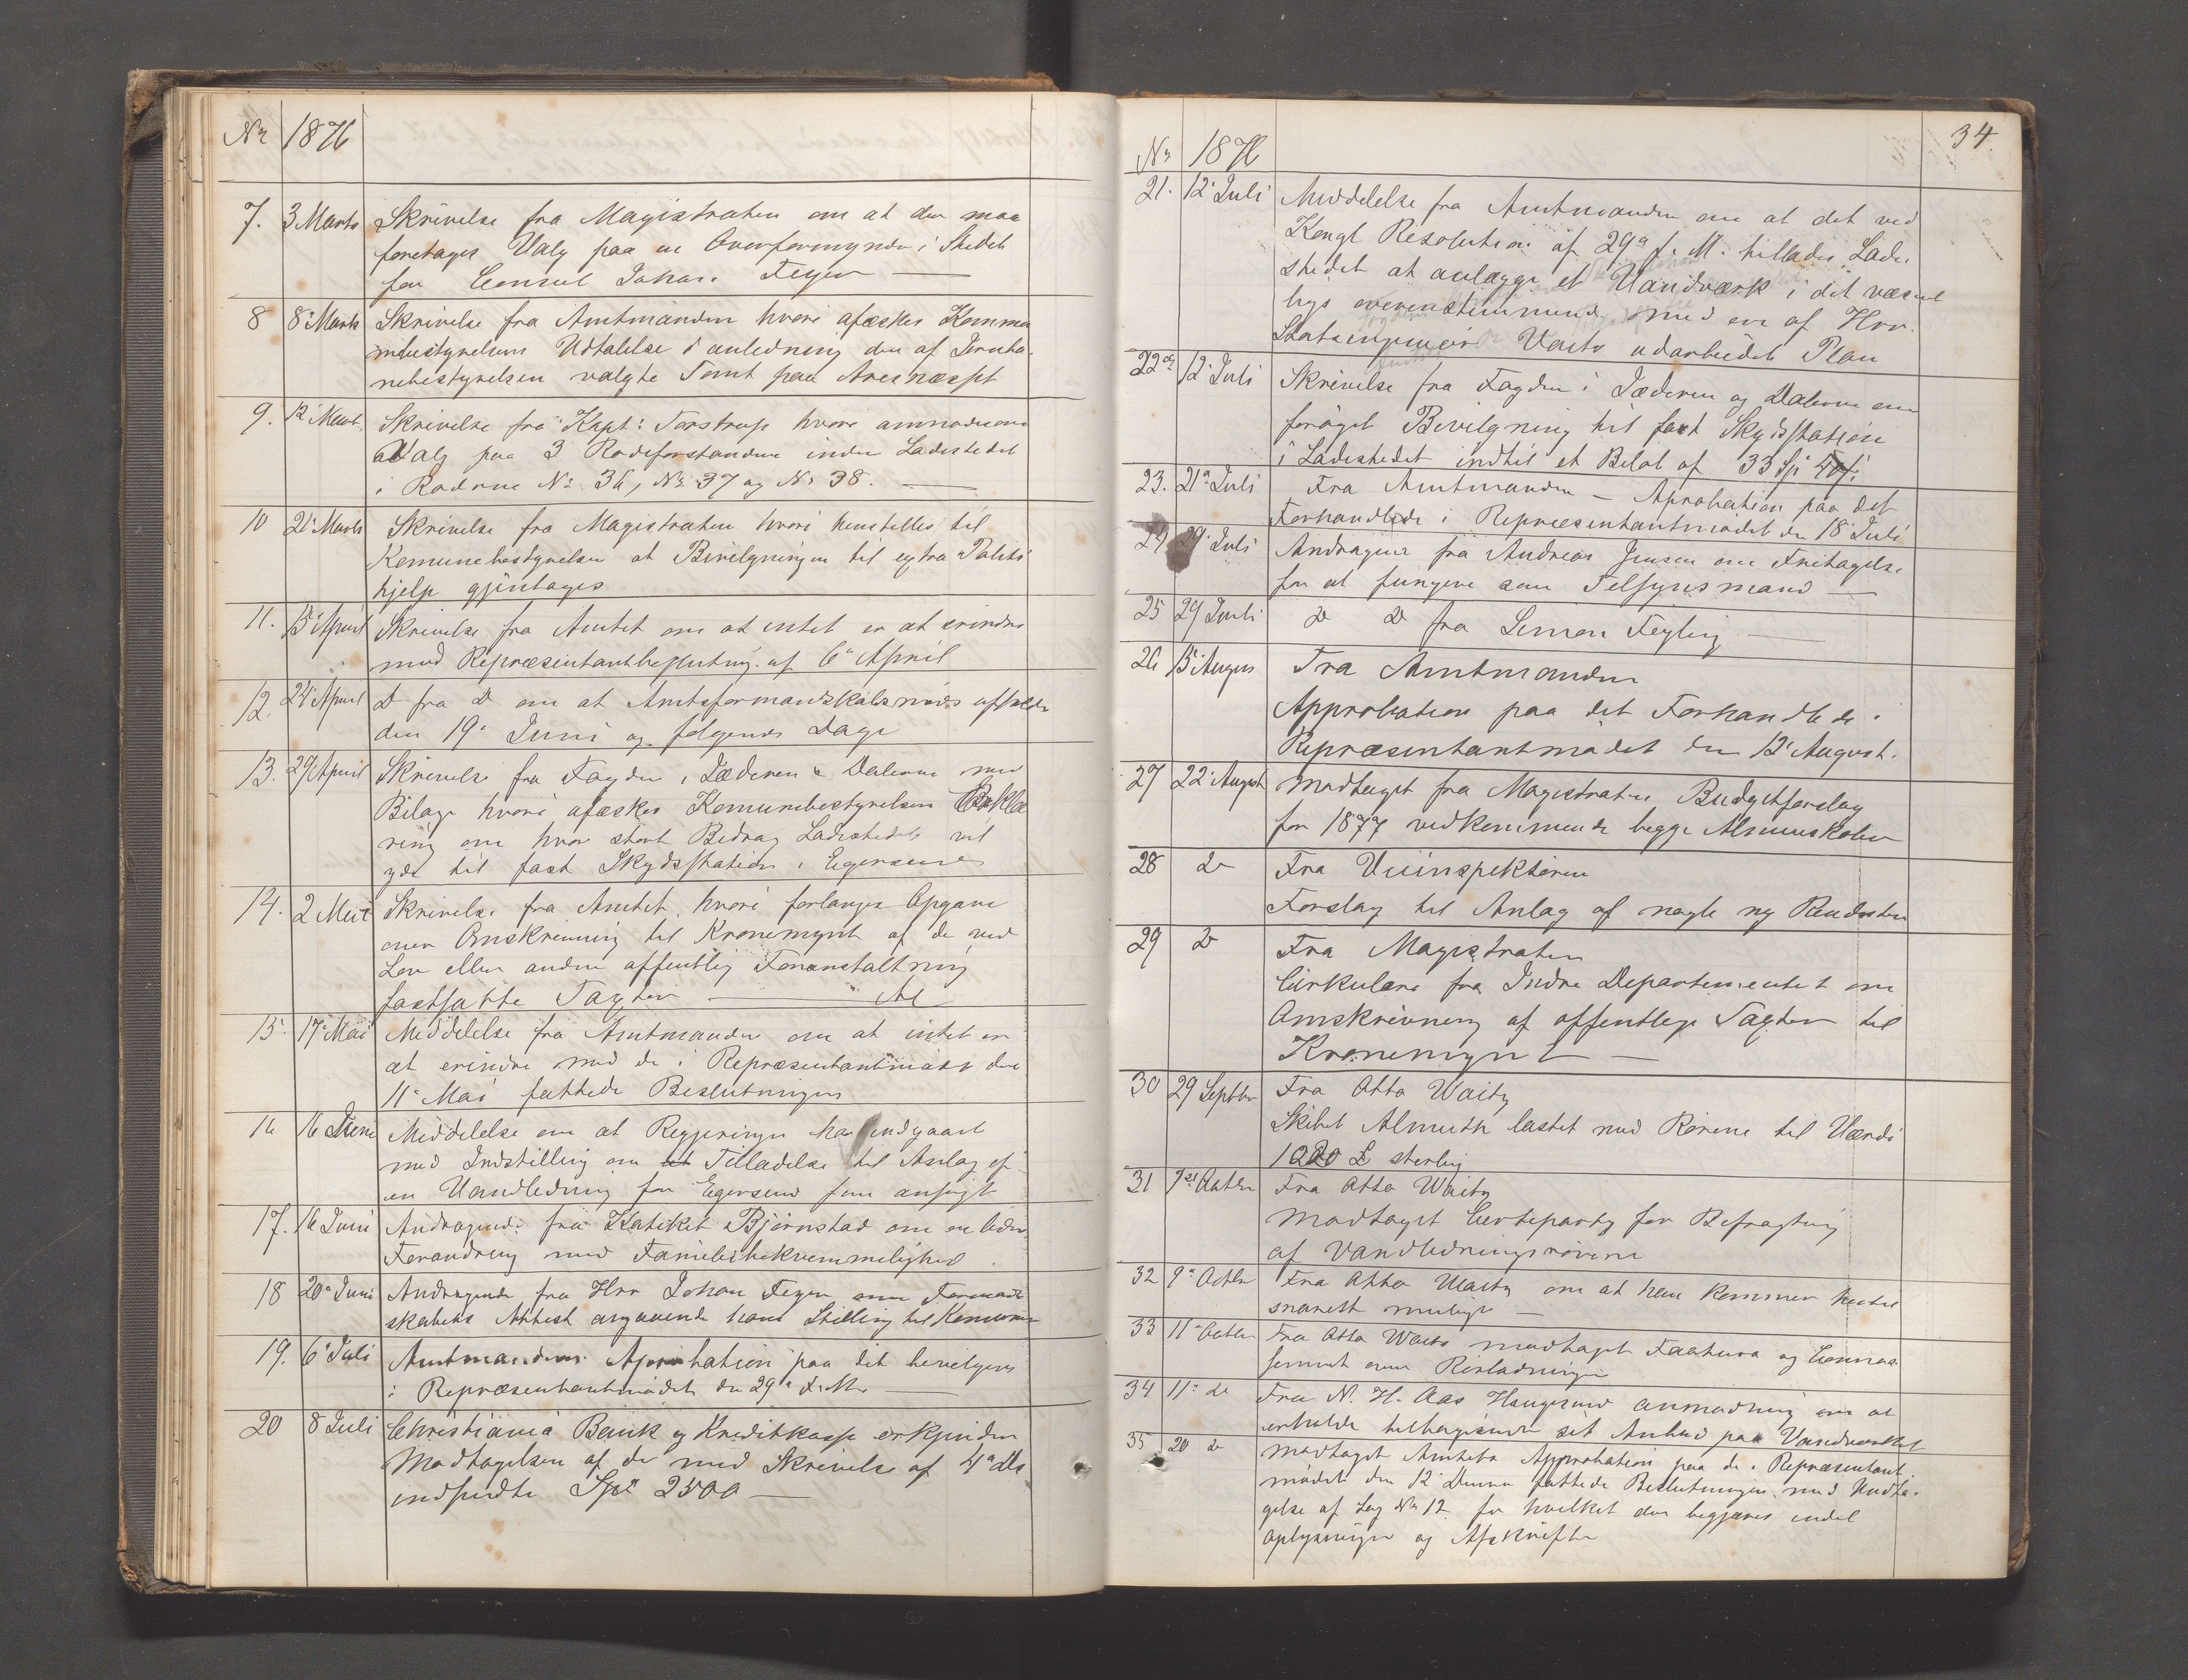 Nr 1876
7. 3 Marts Skrivelse fra Magistraten om at der maa
foretages Valg paa en Overformynder i Stedet
for Consul Johan Feyer —
8 8de Marts Skrivelse fra Amtmanden hvori afæskes Kommu
nebestyrelsens Udtalelse i anledning den af Jernba-
nebestyrelsen valgte Tomt paa Aresnæsset
9. 12 Marts Skrivelse fra Kapt: Torstrup hvori anmodes om
Valg paa 3 Rodeforstandere inden Ladestedet
i Roderne No 36, No 37 og No 38. —
10 21 Marts Skrivelse fra Magistraten hvori henstilles til
Komunebestyrelsen at Bevilgningen til extra Politi
hjelp gjentages
11. 15 April Skrivelse fra Amtet om at intet er at erindre
mod Repræsentantbeslutning af 6 April
12. 24 April D fra D om at Amtsformandskabsmøde afholdes
den 19de Juni og følgende Dage
13. 29 April Skrivelse fra Fogden i Jæderen & Dalerne med
Bilage hvori afæskes Komunebestyrelsen Erklæ
ring om hvor stort Bedrag Ladestedet vil
yde til fast Skydsstation i Egersund
14. 2 Mai Skrivelse fra Amtet, hvori forlanges Opgave
over Omskrivning til Kronemynt af de ved
Lov eller anden offentlig Foranstaltning
fastsatte Taxter —
15. 17 Mai Meddelelse fra Amtmanden om at intet er
at erindre mod de i Repræsentantmøde den
11 Mai fattede Beslutninger
16 16 Juni Meddelelse om at Regjeringen har indgaaet
med Indstilling om Tilladelse til Anlæg af
en Vandledning for Egersund som ansøgt
17. 16 Juni Andragende fra Kateket Bjørnstad om en liden
Forandring med Familiebekvemmelighed
18 20 Juni Andragende fra Hrr Johan Feyer om Formand
skabets Attest angaaende hans Stilling til Komunen
19. 6 Juli Amtmandens Approbation paa det bevilgede
i Repræsentantmødet den 29de f. M. —
20 8 Juli Christiania Bank og Kreditkasse erkjender
Modtagelsen af de med Skrivelse af 4de ds
indsendte Spd 2500 —
34.
Nr 1876
21. 12 Juli Meddelelse fra Amtmanden om at det ved
Kongl Resolution af 29de f. M. tillades Lade
stedet at anlægge et Vandværk i det væsent
ligs overensstemmende med en af Hrr.
Statsingeniør Waitz udarbeidet Plan
22 12 Juli Skrivelse fra Fogden i Jæderen og Dalerne om
forøget Bevilgning til fast Skydsstation
i Ladestedet indtil et Beløb af 33 Sp
23. 21 Juli Fra Amtmanden — Aprobation paa det
Forhandlede i Repræsentantmødet den 18 Juli
24 29 Juli Andragende fra Andreas Jensen om Fritagelse
for at fungere som Tilsynsmand —
25 29 Juli D D fra Simon Feyling —
26 15 August Fra Amtmanden
Approbation paa det Forhandlede i
Repræsentantmødet den 12 August.
27 22 August Modtaget fra Magistraten Budgetforslag
for 1877 vedkommende begge Almueskoler
28 D Fra Veiinspektøren
Forslag til Anlæg af nogle ny Rendestene
29 D Fra Magistraten
Cirkulære fra Indre Departementet om
Omskrivning af offentlige Taxter til
Kronemynt —
30 29 Septbr Fra Otto Waitz
Skibet Almuth lastet med Rørene til Værdi
1020 £ sterling
31 7de Octbr Fra Otto Waitz
Modtaget Certeparty for Befragtning
af Vandledningsrørene
32 9de Octbr Fra Otto Waitz om at han kommer hertil
snarest muligt —
33 11 Octbr Fra Otto Waitz modtaget Faktura og Connos
sement over Rørladningen
34 11 D Fra N. H. Aas Haugesund anmodning om at
erholde tilbagesendt sit Anbud paa Vandværket
35 20 D Modtaget Amtets Approbation paa de i Repræsentant
mødet den 12 Dennes fattede Beslutninger med Undta-
gelse af Sag No 12 for hvilket der begjæres endel
oplysninger og Afskrifter